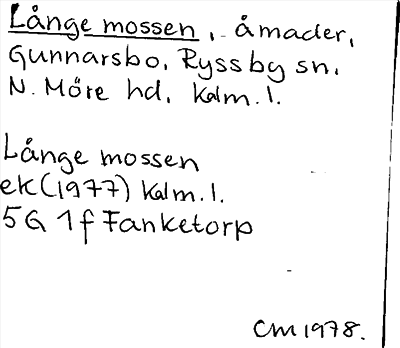 Långe mossen, åmader,
Gunnarsbo, Ryssby sn.
N. Möre hd, Kalm. l.
Långe mossen
ek (1977) Kalm. l.
5G 1f Fanketorp
CM 1978.